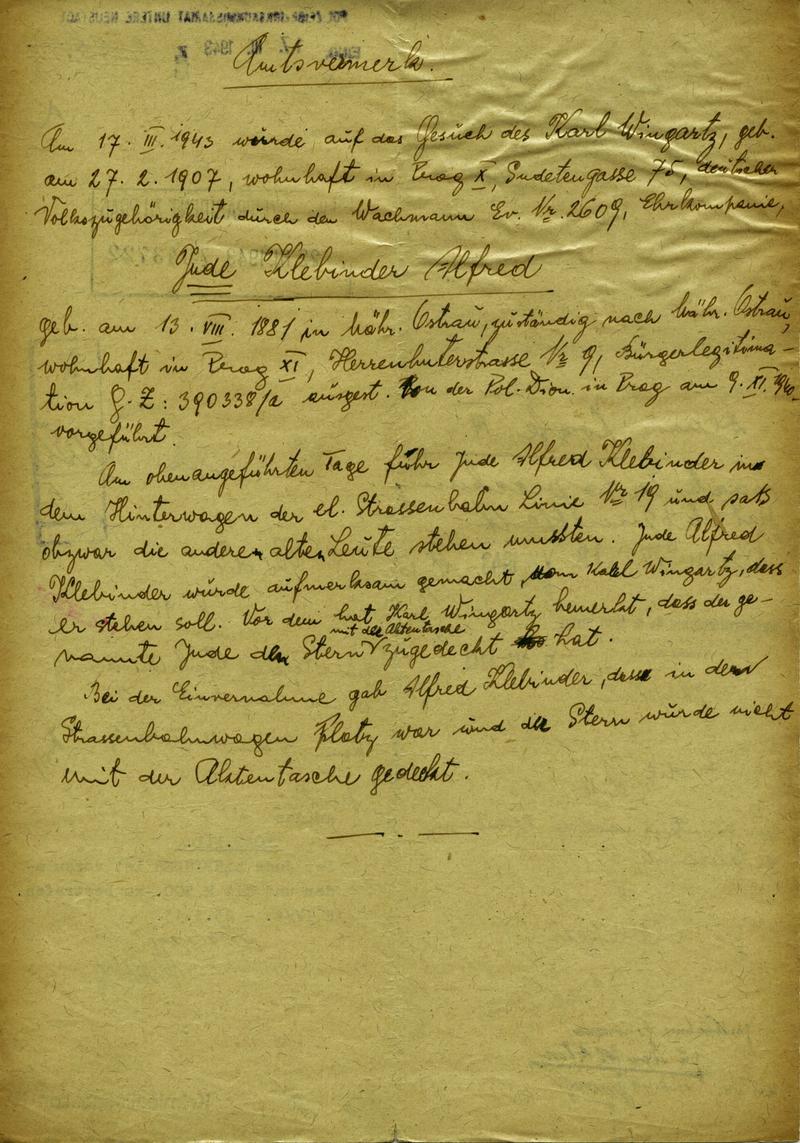 Amtsvermerk.
Am 17. III. 1943 wurde auf das Gesuch des Karl Wingartz, geb.
am 27. 2. 1907, wohnhaft in Prag X, Sudetengasse 75, deutscher
Volkszugehörigkeit durch den Wachmann Ev. Nr. 2609, Ehrkompanie,
Jude Klebinder Alfred
geb. am 13. VIII. 1881 in Mähr. Ostrau, zuständig nach Mähr. Ostrau,
wohnhaft in Prag XI, Herrenhuterstrasse Nr 9, Bürgerlegitima-
tion G. Z: 390338/a ausgest. von der Pol. Dion. in Prag am 9. XI. 1940
vorgeführt.
Am obenangeführten Tage fuhr Jude Alfred Klebinder in
dem Hinterwagen der el. Strassenbahn Linie Nr 19 und sass
obzwar die anderen alten Leute stehen mussten. Jude Alfred
Klebinder wurde aufmerksam gemacht vom Karl Wingartz, dass
er stehen soll. Vor dem hat Karl Wingartz bemerkt, dass der ge-
mit der Aktentasche
nannte Jude den Stern zugedeckt hat.
Bei der Einvernahme gab Alfred Klebinder, dass in dem
Strassenbahnwagen Platz war und der Stern wurde nicht
mit der Aktentasche gedeckt.